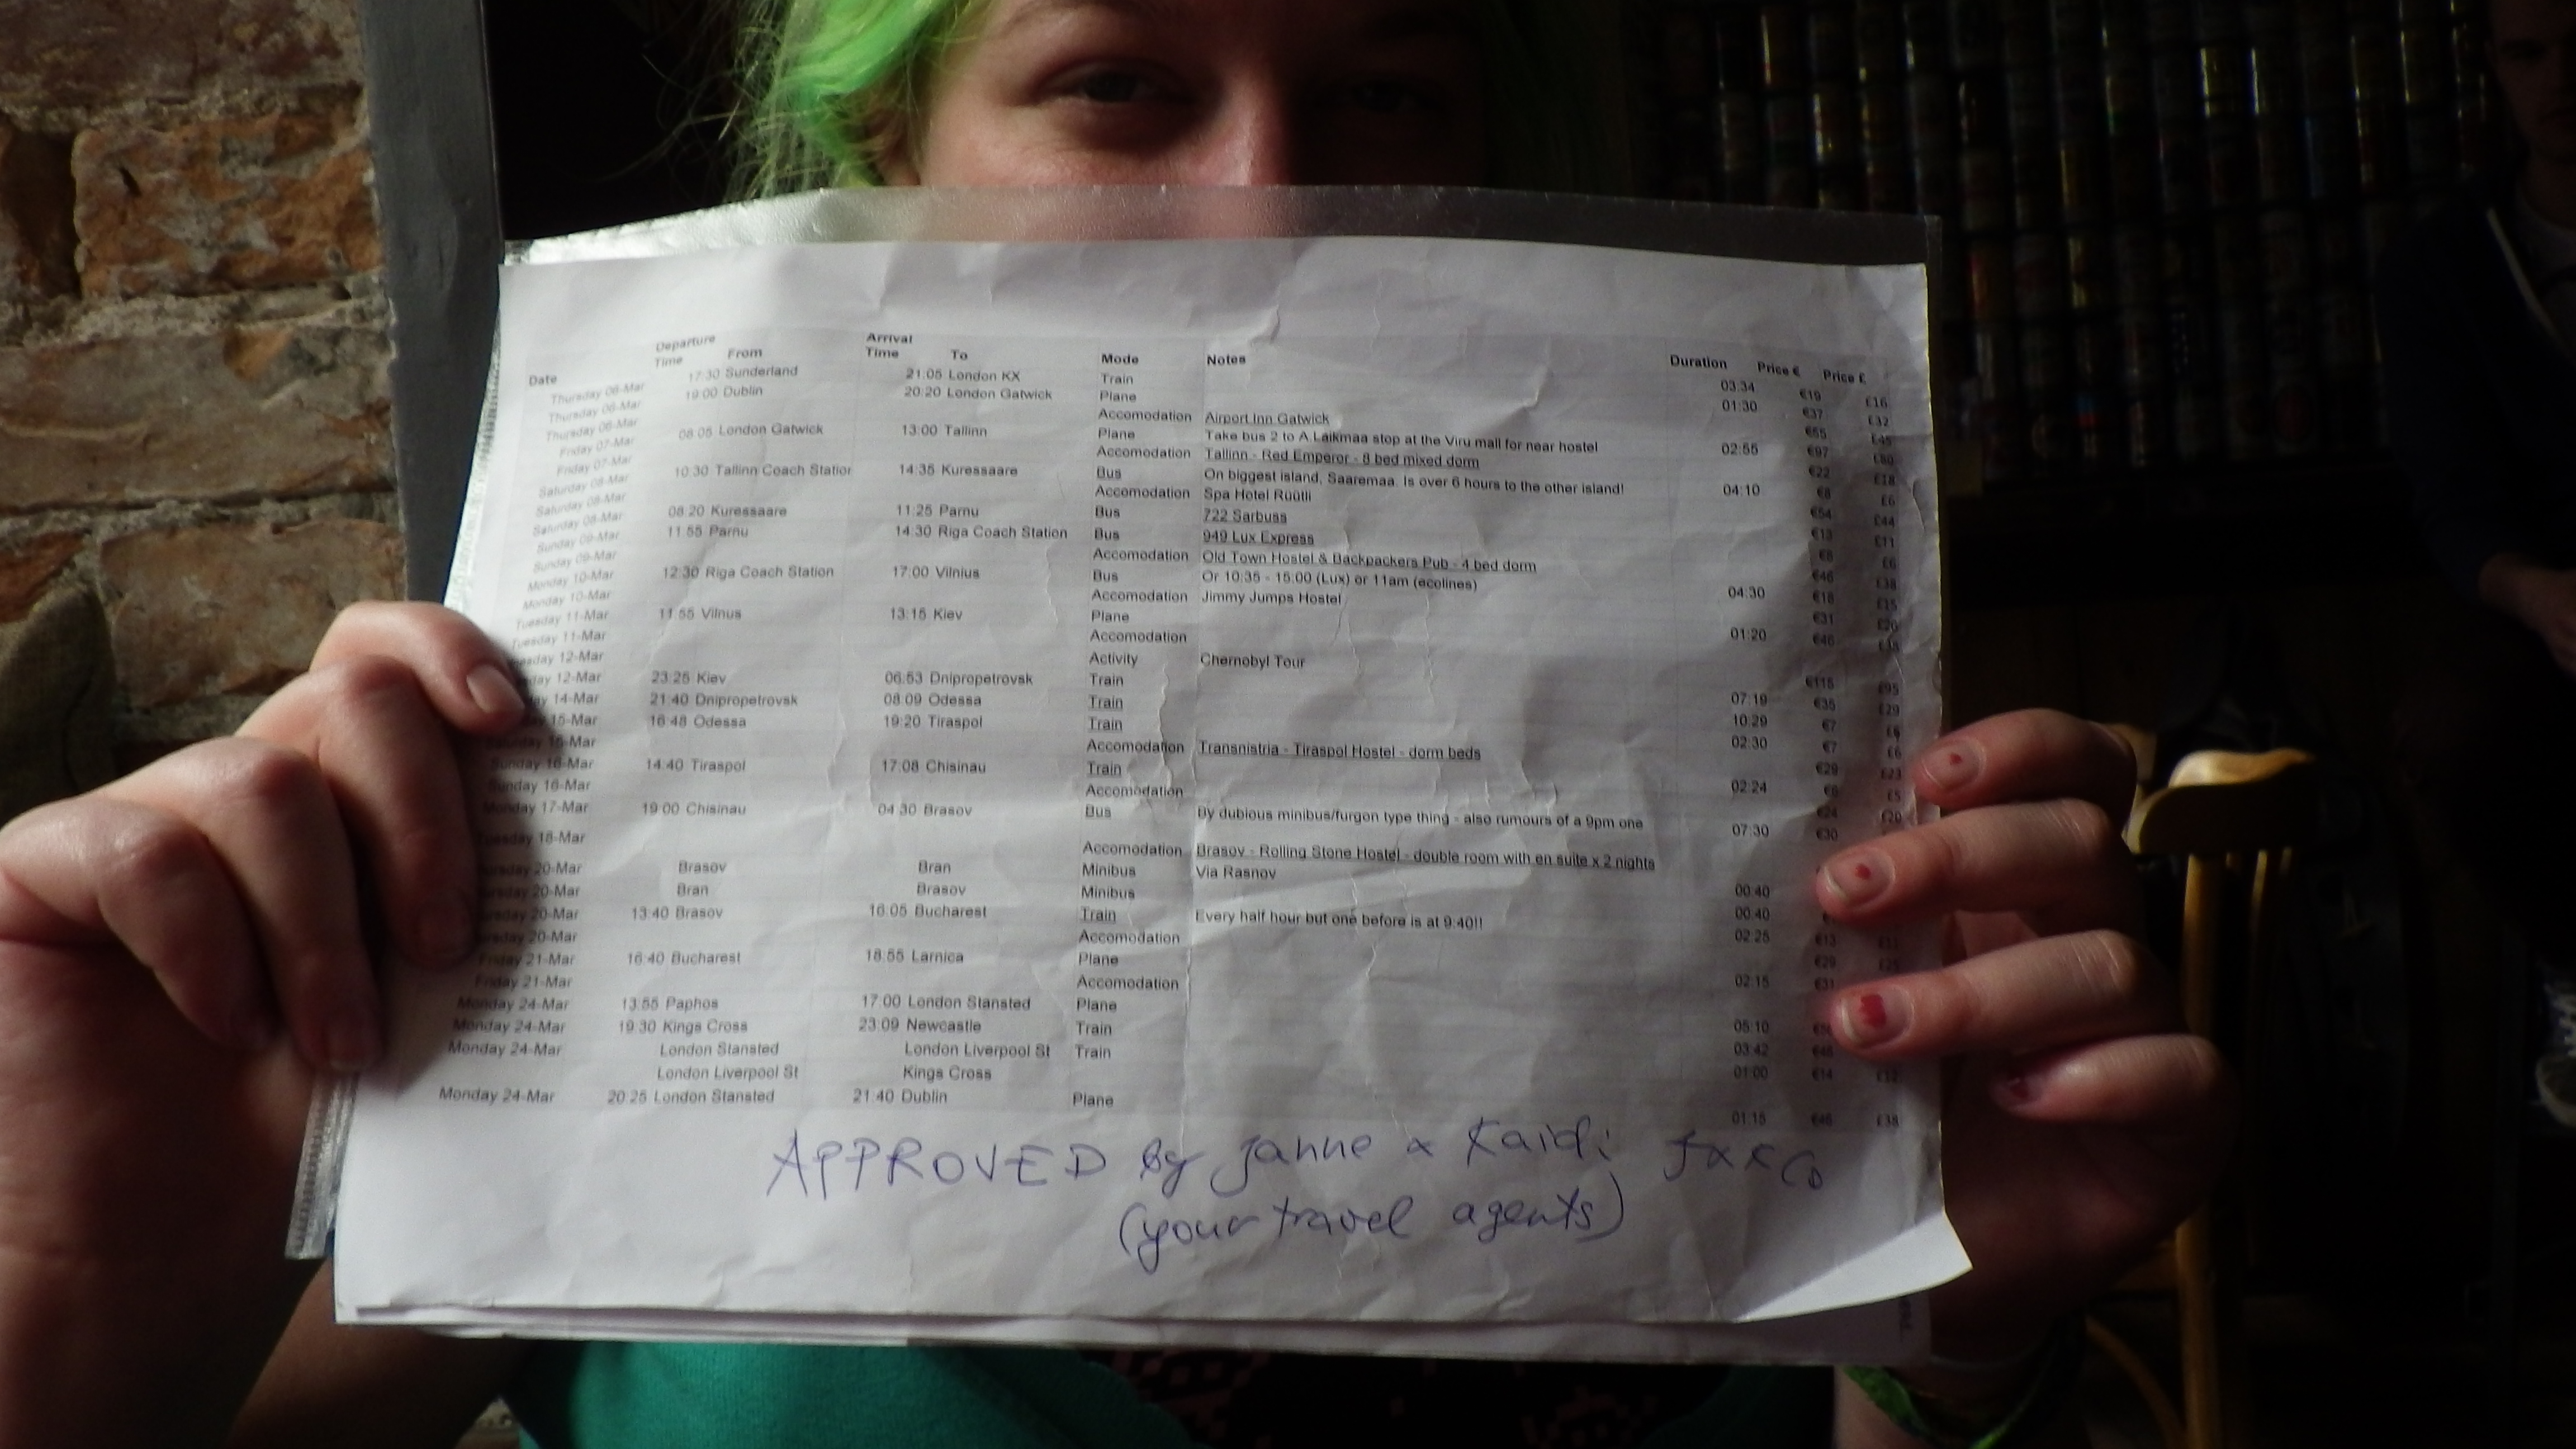 Date Departure Time From Arrival Time To Mode Notes Duration Price € Price £
Thursday 06-Mar 17:30 Sunderland 21:05 London KX Train 03:34 €19 £16
Thursday 06-Mar 19:00 Dublin 20:20 London Gatwick Plane 01:30 €37 £32
Thursday 06-Mar Accomodation Airport Inn Gatwick €55 £45
Friday 07-Mar 08:05 London Gatwick 13:00 Tallinn Plane Take bus 2 to A Laikmaa stop at the Viru mall for near hostel 02:55 €97 £80
Friday 07-Mar Accomodation Tallinn - Red Emperor - 8 bed mixed dorm €22 £18
Saturday 08-Mar 10:30 Tallinn Coach Station 14:35 Kuressaare Bus On biggest island, Saaremaa. Is over 6 hours to the other island! 04:10 €8 £6
Saturday 08-Mar Accomodation Spa Hotel Rüütli €54 £44
Saturday 08-Mar 08:20 Kuressaare 11:25 Parnu Bus 722 Sarbuss €13 £11
Sunday 09-Mar 11:55 Parnu 14:30 Riga Coach Station Bus 949 Lux Express €8 £6
Sunday 09-Mar Accomodation Old Town Hostel & Backpackers Pub - 4 bed dorm €46 £38
Monday 10-Mar 12:30 Riga Coach Station 17:00 Vilnius Bus Or 10:35 - 15:00 (Lux) or 11am (ecolines) 04:30 €18 £15
Monday 10-Mar Accomodation Jimmy Jumps Hostel €31
Tuesday 11-Mar 11:55 Vilnus 13:15 Kiev Plane 01:20 €46 £38
Tuesday 11-Mar Accomodation
12-Mar Activity Chernobyl Tour €115 £95
12-Mar 23:25 Kiev 06:53 Dnipropetrovsk Train 07:19 €35 £29
14-Mar 21:40 Dnipropetrovsk 08:09 Odessa Train 10:29 €7 £6
15-Mar 16:48 Odessa 19:20 Tiraspol Train 02:30 €7 £6
Saturday 15-Mar Accomodation Transnistria - Tiraspol Hostel - dorm beds €29 £23
Sunday 16-Mar 14:40 Tiraspol 17:08 Chisinau Train 02:24 €6 £5
Sunday 16-Mar Accomodation €24 £20
Monday 17-Mar 19:00 Chisinau 04:30 Brasov Bus By dubious minibus/furgon type thing - also rumours of a 9pm one 07:30 €30
Tuesday 18-Mar Accomodation Brasov - Rolling Stone Hostel - double room with en suite x 2 nights
20-Mar Brasov Bran Minibus Via Rasnov 00:40
20-Mar Bran Brasov Minibus 00:40
20-Mar 13:40 Brasov 16:05 Bucharest Train Every half hour but one before is at 9:40!! 02:25 €13 £11
20-Mar Accomodation €29 £25
Friday 21-Mar 16:40 Bucharest 18:55 Larnica Plane 02:15 €31
Friday 21-Mar Accomodation
Monday 24-Mar 13:55 Paphos 17:00 London Stansted Plane 05:10
Monday 24-Mar 19:30 Kings Cross 23:09 Newcastle Train 03:42
Monday 24-Mar London Stansted London Liverpool St Train 01:00 €14 £12
London Liverpool St Kings Cross
Monday 24-Mar 20:25 London Stansted 21:40 Dublin Plane 01:15 €46 £38
APPROVED by Janne & Kaidi
(your travel agents)